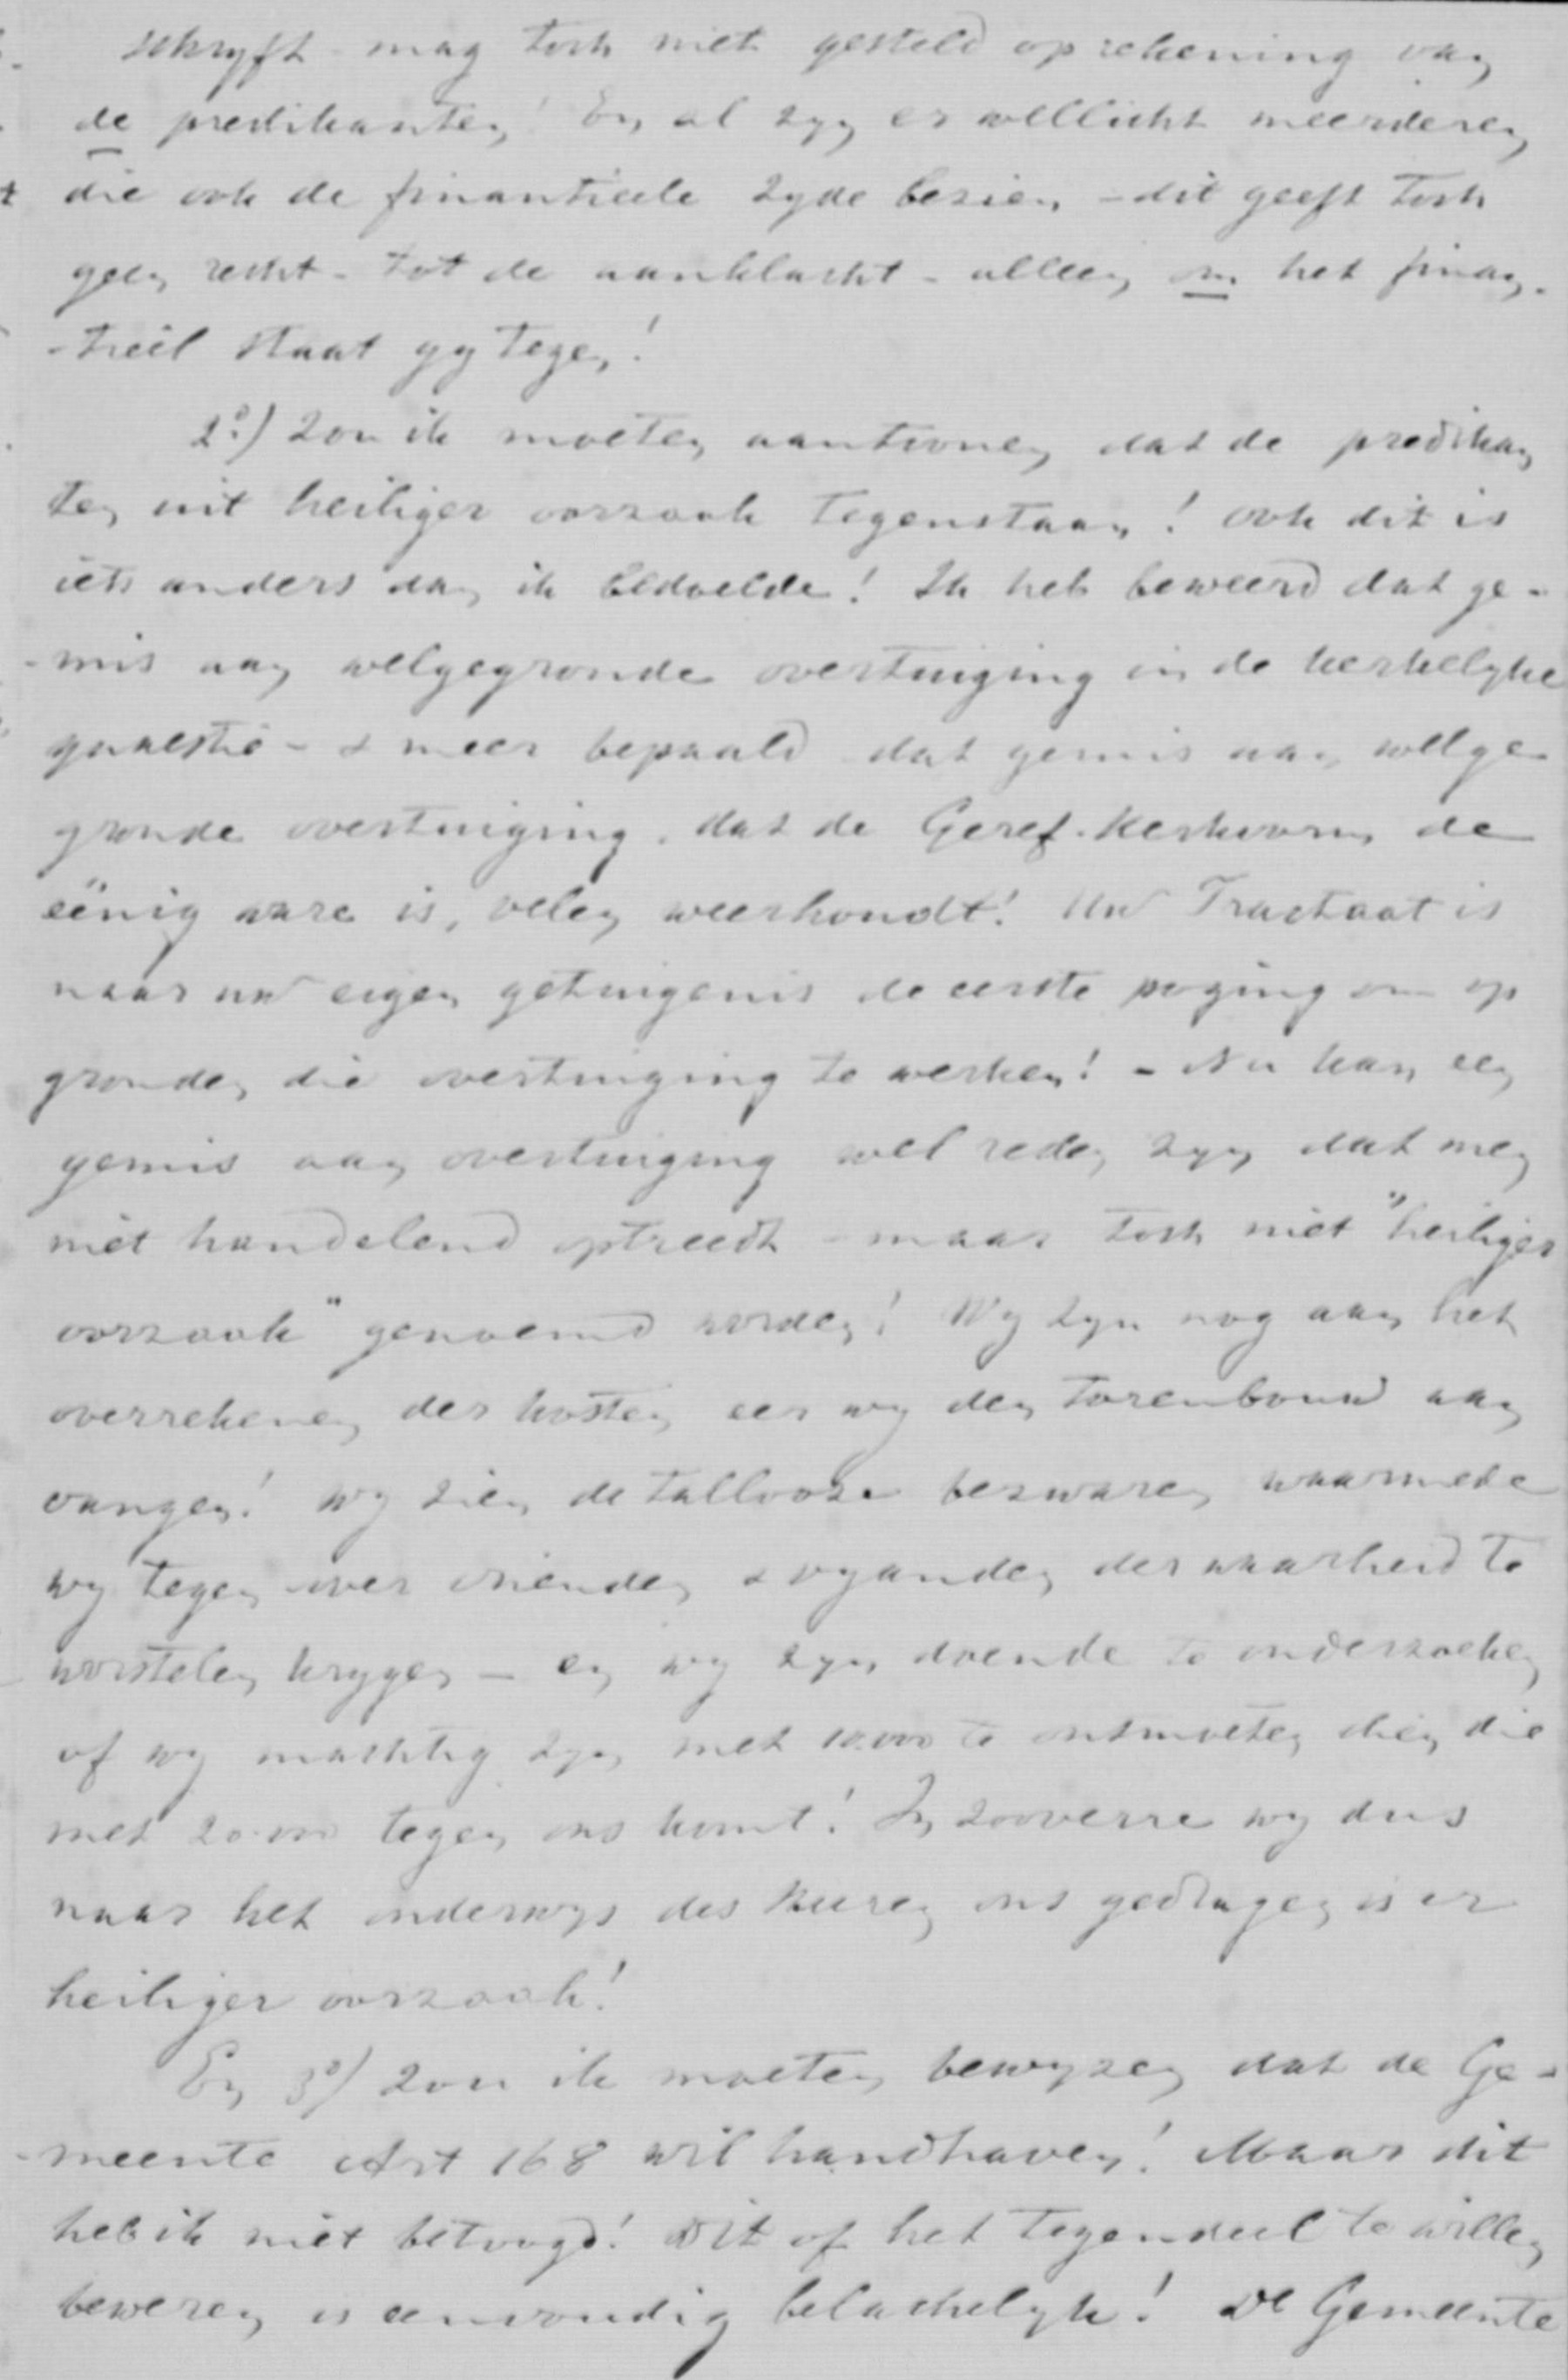 schryft - mag toch niet gesteld op rekening van
de predikanten! En al zyn er wellicht meerderen
die ook de finantieele zyde bezien - dit geeft toch
geen recht - tot de aanklacht - alleen om het finan-
-tieel staat gy tegen!
2o) zou ik moeten aantoonen dat de predikan
ten uit heiliger oorzaak tegenstaan! ook dit is
iets anders dan ik bedoelde! Ik heb beweerd dat ge-
-mis aan welgegronde overtuiging in de kerkelyke
quaestie - & meer bepaald dat gemis aan welge
gronde overtuiging, dat de Geref. Kerkvorm de
eënig ware is, velen weerhoudt! Uw Tractaat is
naar uw eigen getuigenis de eerste poging om op
gronden die overtuiging te werken! - Nu kan een
gemis aan overtuiging wel reden zyn dat men
niet handelend optreedt - maar toch niet "heiliger
oorzaak" genoemd worden! Wy zyn nog aan het
overrekenen der kosten eer wy den torenbouw aan
vangen! wy zien de tallooze bezwaren waarmede
wy tegen over vrienden & vyanden der waarheid te
worstelen krygen - en wy zyn doende te onderzoeken
of wy machtig zyn met 10.000 te ontmoeten dien die
met 20.000 tegen ons komt! In zooverre wy dus
naar het onderwys des Heeren ons gedragen is er
heiliger oorzaak!
En 3o) zou ik moeten bewyzen dat de Ge-
-meente Art 168 wil handhaven! Maar dit
heb ik niet betoogd! Dit of het tegendeel te willen
beweren is eenvoudig belachelyk! De Gemeente